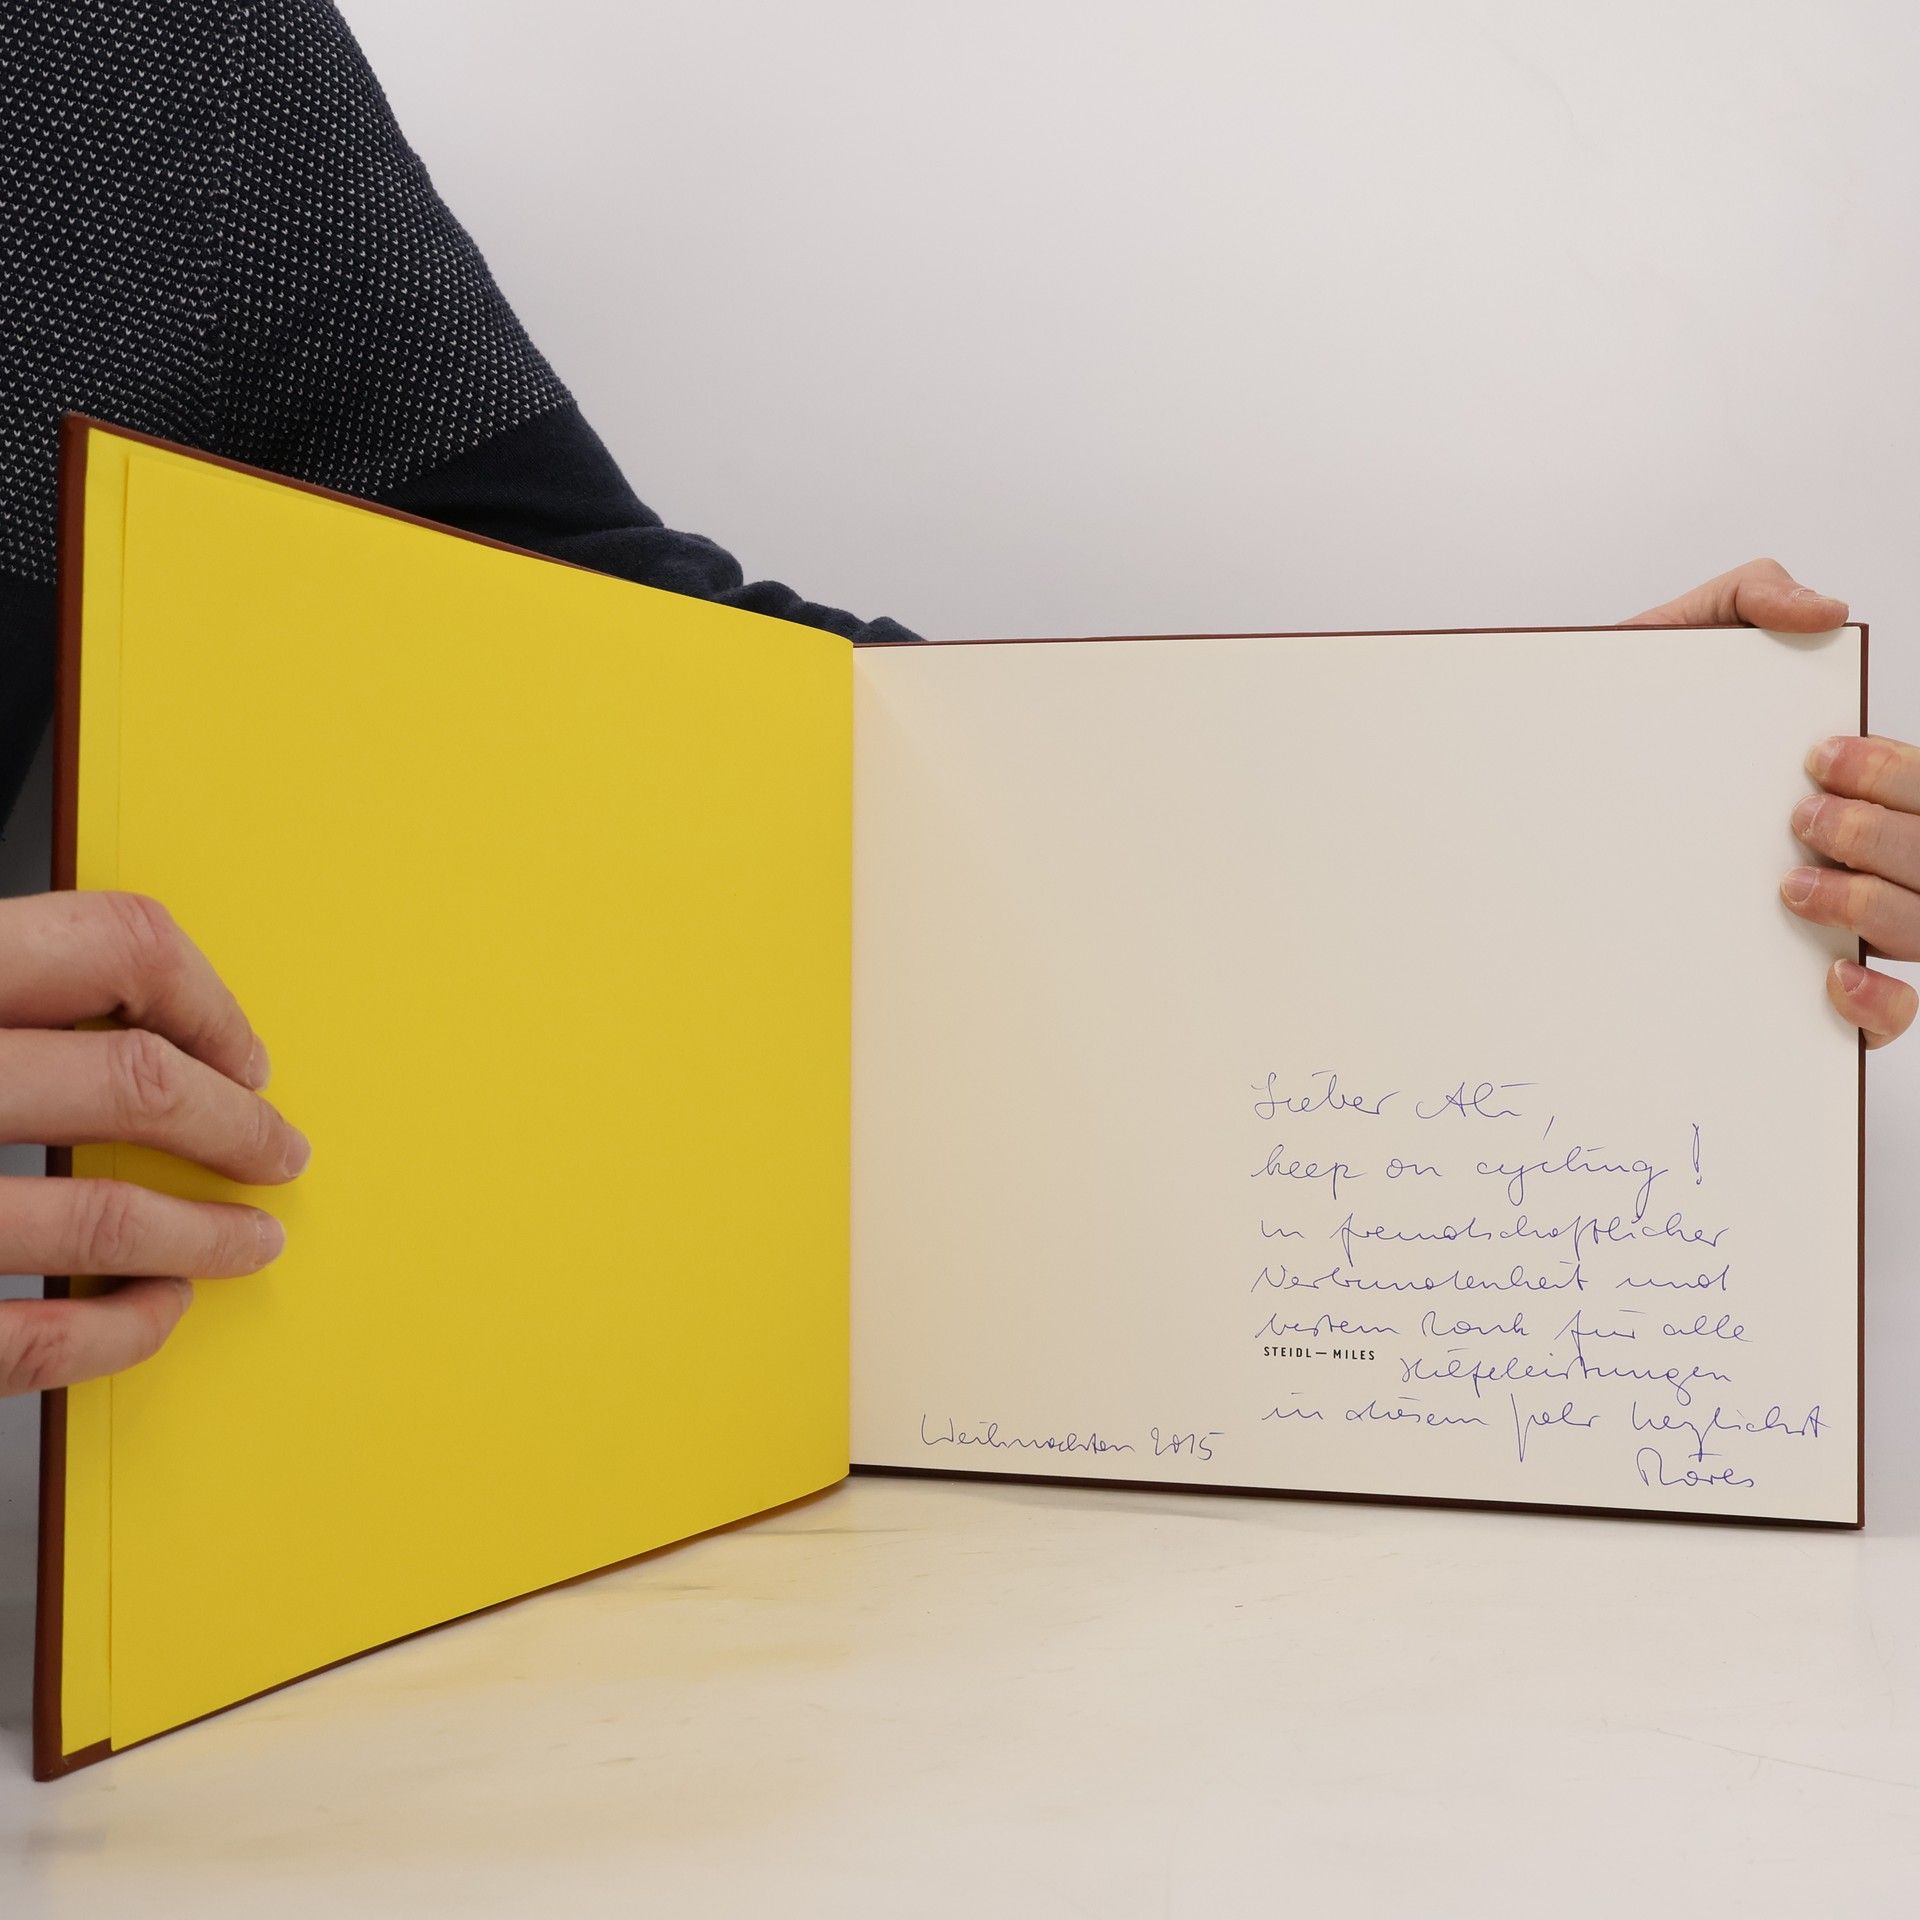 Lieber Ali,
keep on cycling!
in freundschaftlicher
Verbundenheit und
besten Dank für alle
STEIDL—MILES
Hilfeleistungen
in diesem Jahr herzlichst
Weihnachten 2015